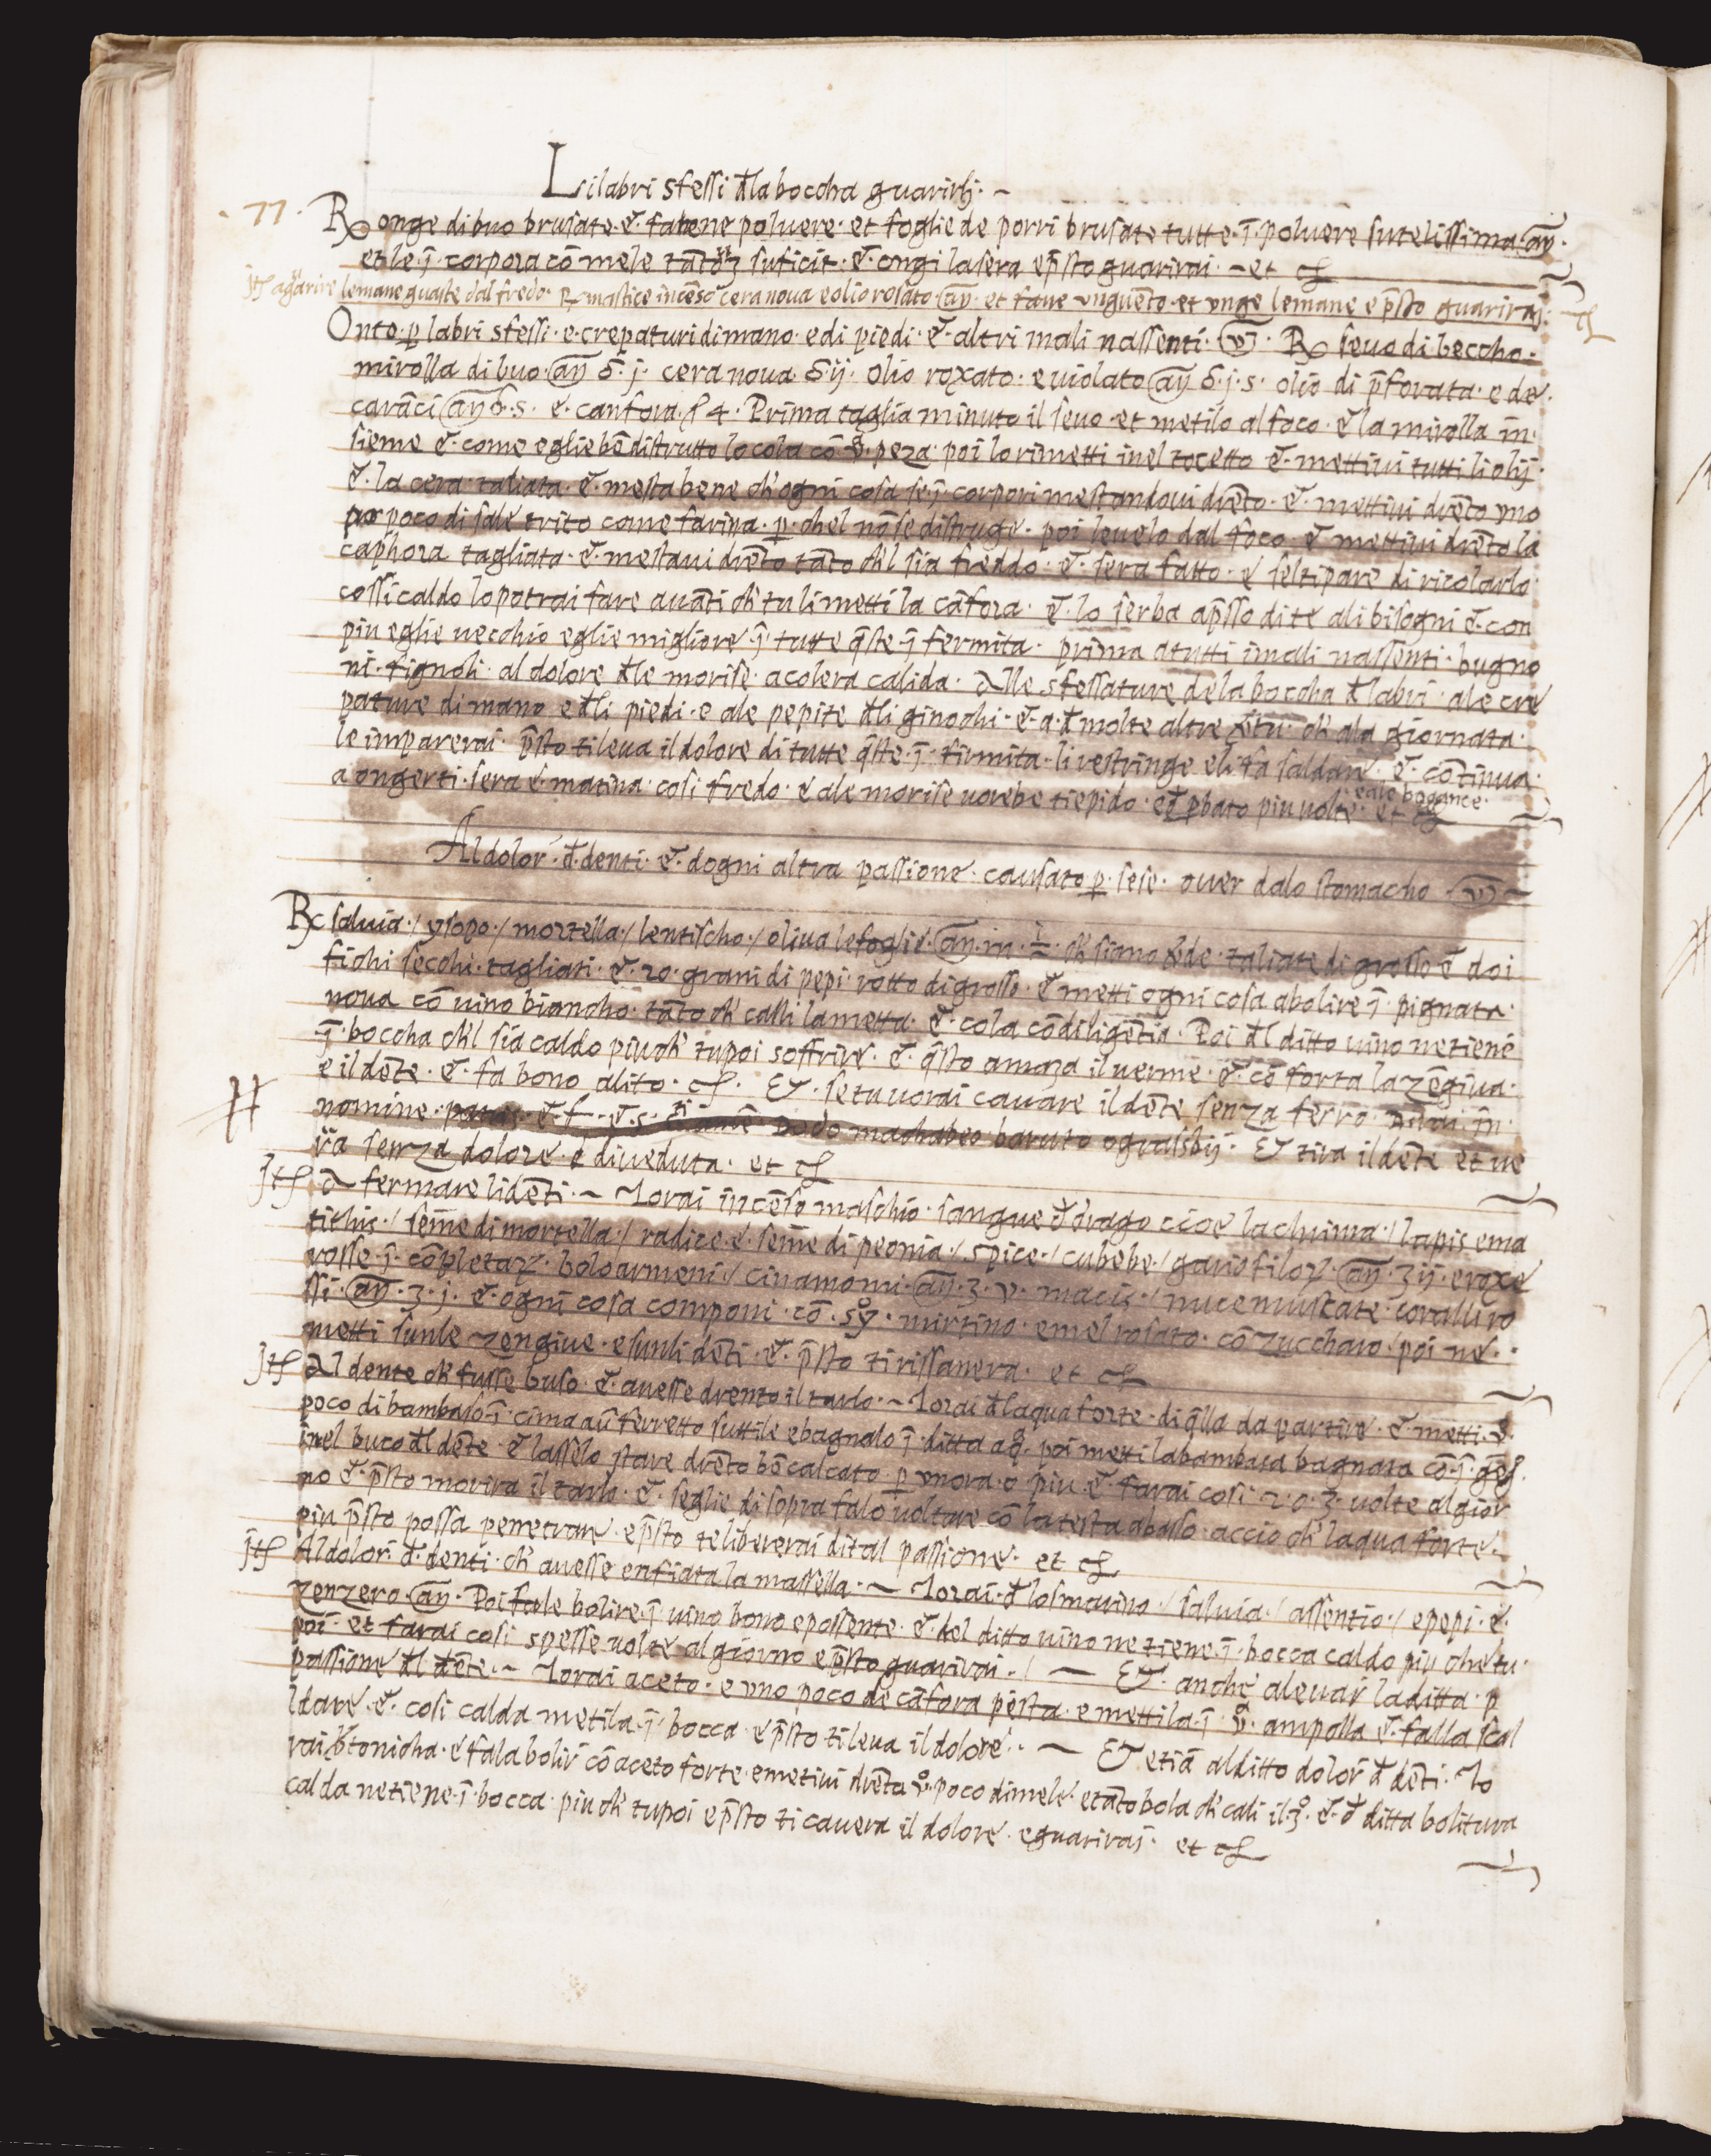 Li labri sfessi đ la boccha guarirlj. ~
. 77 .
R ongie di buo brusate. e. fatene poluere. et foglie de porri brusate tutte. ī. poluere sutelissima. añ.
et le. ī. corpora cō mele tāto suficit. e. ongi la sera e p̄sto guarirai. ~ et
Jt agūarire le mane guaste dal fredo. R mastice incēso cera noua e olio rosato añ. et fane vnguēto. et vnge le mane e p̄sto guarirai.
Onto. p labri sfessi. e. crepaturi di mano. e di piedi. e. altri mali nassenti. R seuo di beccho.
mirolla di buo. añ j. cera noua ij. olio roxato. e uiolato añ j. s. olio di p̄forata. e de.
carāci añ s. e. canfora 4. Prima taglia minuto il seuo. et metilo al foco. e la mirolla in
sieme e. come egli e bē distrutto lo cola cō peza. poi lo rimetti inel tocetto e. mettiui tutti li olij.
e. la cera taliata. e. mesta bene ch' ogni cosa se ī. corpori mestandoui drēto. e. mettiui drēto vno
poco di sale trito come farina. p. chel nō se distruge. poi leuelo dal foco. e mettiui drēto la
caphora tagliata. e. mestaui drēto tāto ch'l sia freddo. e. sera fatto. e sel ti pare di ricolarlo.
cossi caldo lo potrai fare auāti ch' tu li metti la cāfora. e. lo serba ap̄sso di te ali bisogni e. con
piu egli e uecchio egli e migliore ī. tutte q̄ste ī. fermita. prima a tutti i mali nassenti. bugno
ni. tignoli. al dolore đ le morise. a colera calida. Alle sfessature de la boccha đ labri. ale cre
pature di mano e đ li piedi. e ale pepite đ li ginochi. e. a. đ molte altre ch' ala giornata.
le imparerai. p̄sto ti leua il dolore di tutte q̄ste. ī. firmita. li restringe e li fa saldare. e. cōtinua.
e ale bogance.
a ongerti. sera e. matina. cosi fredo. e ale morise uorebe tiepido. e pbato piu uolte. et

Al dolor. đ. denti. e. dogni altra passione. causato p. sese. ouer dalo stomacho
R saluia. / ysopo. / mortella. / lentischo. / oliua le foglie. añ. m. ch' siano taliate di grosso e doi
fichi secchi. tagliati. e. 20. grani di pepi. rotto di grosso. e metti ogni cosa a bolire ī. pignata.
noua cō uino biancho. tāto ch' calli la metta. e. cola cō diligētia. Poi đl ditto uino ne tiene
ī. boccha ch'l sia caldo piu ch' tu poi soffrire. e. q̄sto amaza il uerme. e. cō forta la zēgiua.
e il dēte. e. fa bono alito. Et. se tu uorai cauare il dēte senza ferro. in.
nomine. patris. e. f. e. s. machabeo baruto Et tira il dēte et ue
rā senza dolore. e di ueduta. et
#
Jt A fermare li dēti. ~ Torai incēso maschio. sangue đ drago cioe lachrima. / lapis ema
tithis. / seme di mortella. / radice. e. seme di peonia. / spice. / cubebe. / gariofiloꝝ. añ. ʒ ij. e roxe
rosse. ī. bolo armeni. / cinamomi. añ. ʒ. v. macis. / nuce muscate. coralli ro
ssi. añ. ʒ. j. e. ogni cosa componi. cō. mirtino. e mel rosato. cō zuccharo. poi ne.
metti sunle zengiue. e sunli dēti. e. p̄sto ti rissanera. et
Jt Al dente ch' fusse buso. e. auesse drento il tarlo. ~ Torai đ laqua forte. di q̄lla da partire. e. metti.
poco di bambaso. ī. cima a ū ferretto suttile e bagnalo ī. ditta poi metti la bambasa bagnata
inel buco đl dēte. e lasselo stare drēto bē calcato. p vnora. o piu. e. farai cosi 2. o. 3. uolte al gior
no e. p̄sto morira il tarlo. e. segli e di sopra falo uoltare cō la testa abasso. accio ch' laqua forte.
piu p̄sto possa penetrare. e p̄sto te libererai di tal passione. et
Jt Al dolor. đ. denti. ch' auesse enfiata la massella. ~ Torai. đ losmarino. / saluia. / assentio. / e pepi. e.
zenzero. añ. Poi fale bolire. ī. uino bono e possente. e. del ditto uino ne tiene. ī. bocca caldo piu che tu.
poi. et farai cosi spesse uolte al giorno e p̄sto guarirai. / ~ Et. anche a leuar la ditta. p
passione đl dēte. ~ Torai aceto. e vno poco de cāfora pesta. e mettila. ī. ampolla e. falla scal
ldare. e. cosi calda metila. ī. bocca. e p̄sto ti leua il dolore. ~ Et etiā al ditto dolor đ dēti. To
rai btonicha. e fala bolir cō aceto forte. e metiui drēto poco di mele. e tāto bola ch' cali il. 3. e. đ ditta bolitura
calda ne tiene. ī. bocca. piu ch' tu poi e p̄sto ti cauera il dolore. e guarirai. et